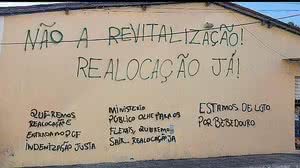 NÃO A REVITALIZAÇÃO!
REALOCAÇÃO JÁ!
QUEREMOS
REALOCAÇÃO E
ENTRADA NO PCF
INDENIZAÇÃO JUSTA
MINISTERIO
PÚBLICO OLHE PARA OS
FLEXAIS, QUEREMOS
SAIR.. REALOCAÇÃO JA
ESTAMOS DE LUTO
POR BEBEDOURO